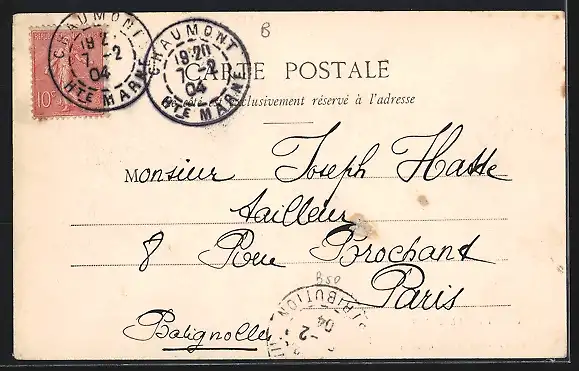 B
CHAUMONT
19 2
7 -2
04
HTE MARNE
CHAUMONT
19 20
7 -2
04
HTE MARNE
10
CARTE POSTALE
Ce côté est exclusivement réservé à l'adresse
Monsieur Joseph Hatte
tailleur
8 Rue Brochant
Paris
Batignolles
DISTRIBUTION
-2
04